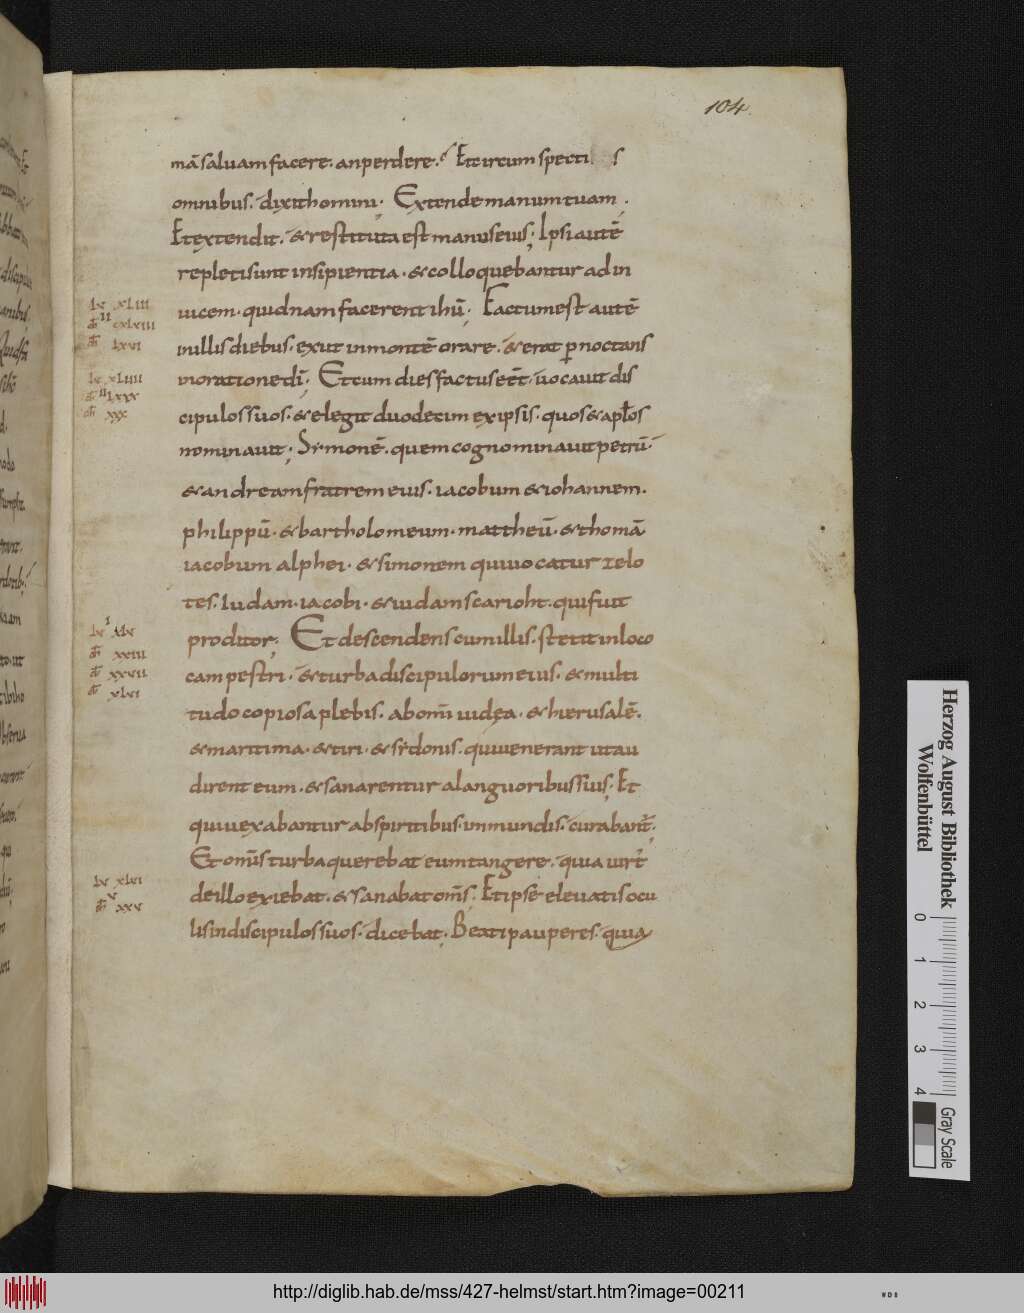 104
mā saluam facere. an perdere. Et circum specti s
omnibus. dixit homini. Extende manum tuam.
Et extendit. & restituta est manus eius. Ipsi autē
repleti sunt insipientia. & colloquebantur ad in
uicem. quidnam facerent ihū. Factum est autē
in illis diebus. exiit in montē orare. & erat p̄noctans
in oratione dī. Et cum dies factus eēt. uocauit dis
cipulos suos. & elegit duodecim ex ipsis. quos & aptōs
nominauit. Simonē. quem cognominauit petrū.
& andream fratrem eius. iacobum & iohannem.
philippū. & bartholomeum. mattheū. & thomā
iacobum alphei. & simonem qui uocatur zelo
tes. Iudam. iacobi. & iudam scarioht. qui fuit
proditor. Et descendens cum illis. stetit in loco
campestri. & turba discipulorum eius. & multi
tudo copiosa plebis. ab om̄i iudęa. & hierusalē.
& maritima. & tiri. & sidonis. qui uenerant ut au
dirent eum. & sanarentur a languoribus suis. Et
qui uexabantur ab spiritibus. inmundis. curabant̄.
Et om̄is turba querebat eum tangere. quia uirt̄
de illo exiebat. & sanabat om̄s. Et ipse eleuatis ocu
lis in discipulos suos. dicebat. Beati pauperes. quia
Herzog August Bibliothek
Wolfenbüttel
0 1 2 3 4
Gray Scale
http://diglib.hab.de/mss/427-helmst/start.htm?image=00211